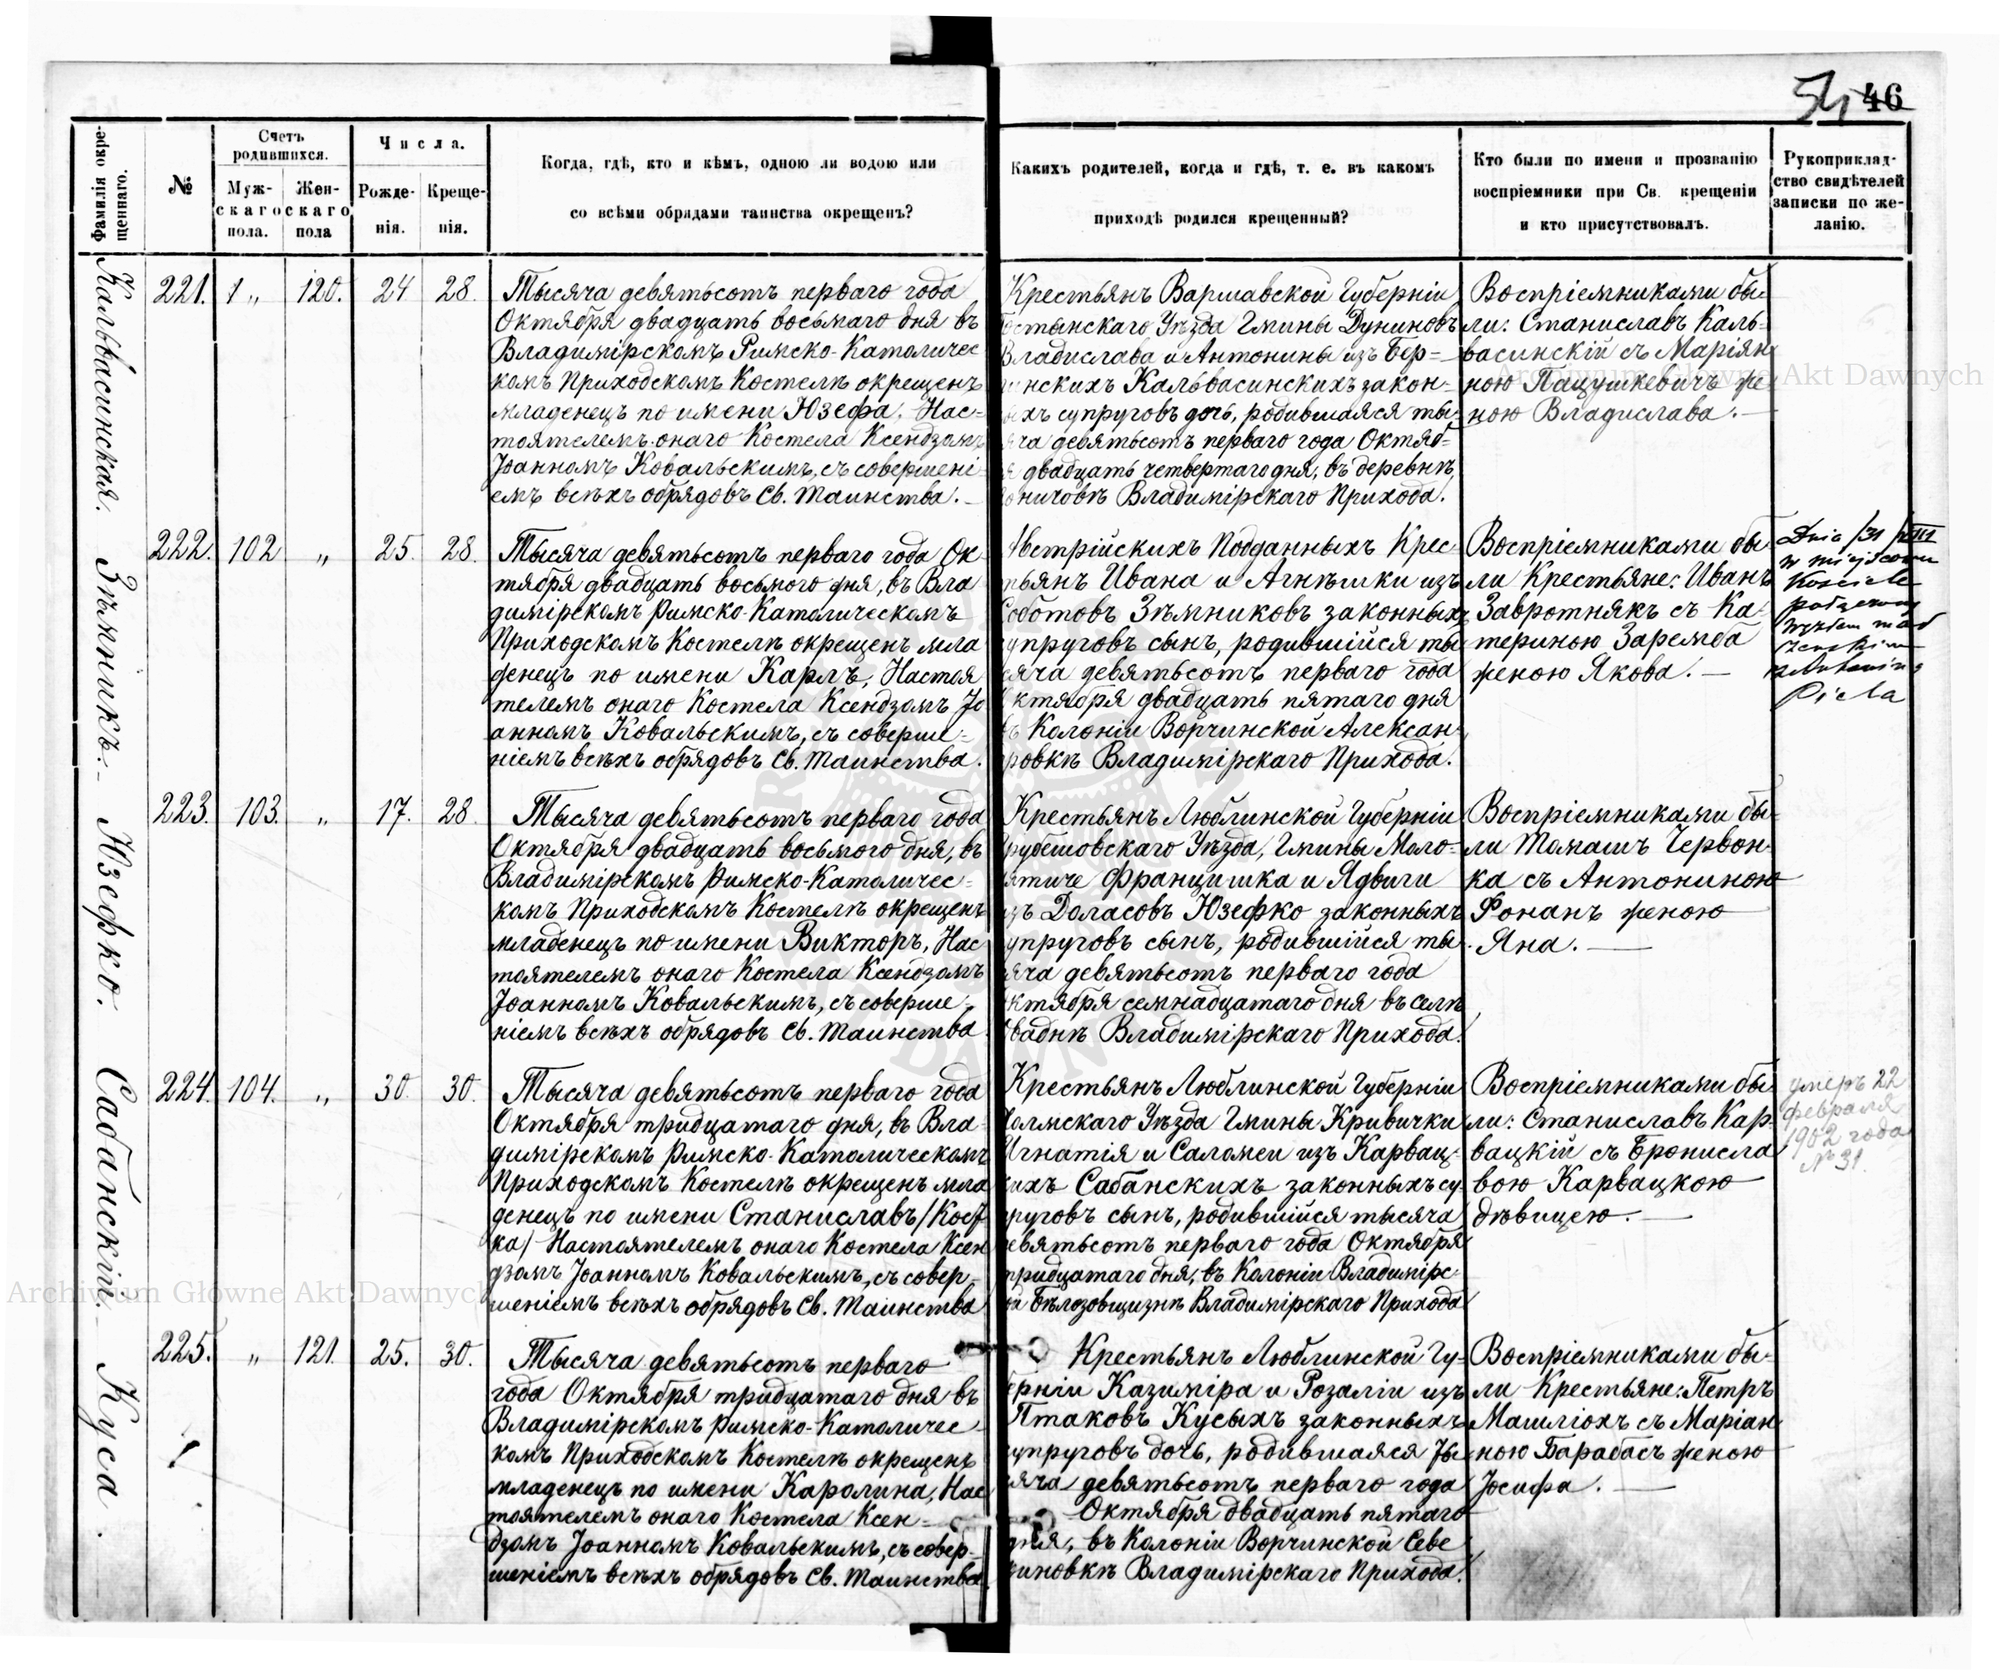 54 46
Фамилія окре-
щеннаго.
№
Счетъ
родившихся.
Муж-
скаго
пола.
Жен-
скаго
пола
Числа.
Рожде-
нія.
Креще-
нія.
Когда, гдѣ, кто и кѣмъ, одною ли водою или
со всѣми обрядами таинства окрещенъ?
Какихъ родителей, когда и гдѣ, т. е. въ какомъ
приходѣ родился крещенный?
Кто были по имени и прозванію
воспріемники при Св. крещеніи
и кто присутствовалъ.
Рукоприклад-
ство свидѣтелей
записки по же-
ланію.
Кальвасинская.
221. 1 „ 120. 24 28.
Тысяча девятьсотъ перваго года
Октября двадцать восьмаго дня въ
Владимірскомъ Римско-Католичес
комъ Приходскомъ Костелѣ окрещенъ
младенецъ по имени Юзефа. Нас-
тоятелемъ онаго Костела Ксендзомъ
Іоанномъ Ковальскимъ, съ совершені-
емъ всѣхъ обрядовъ Св. Таинства.
Крестьянъ Варшавской Губерніи
Гостынскаго Уѣзда Гмины Дуниновъ
Владислава и Антонины изъ Бер-
инскихъ Кальвасинскихъ закон-
ыхъ супруговъ дочь, родившаяся ты-
яча девятьсотъ перваго года Октяб-
я двадцать четвертаго дня, въ деревнѣ,
оничовкѣ Владимірскаго Прихода.
Воспріемниками бы-
ли: Станиславъ Каль-
васинскій съ Маріян
ною Пацушкевичъ же
ною Владислава.
Зѣмникъ.
222. 102 „ 25. 28.
Тысяча девятьсотъ перваго года Ок-
тября двадцать восьмого дня, въ Вла
димірскомъ Римско-Католическомъ
Приходскомъ Костелѣ окрещенъ мла
денецъ по имени Карлъ, Настоя
телемъ онаго Костела Ксендзомъ Іо
анномъ Ковальскимъ, съ соверше-
ніемъ всѣхъ обрядовъ Св. Таинства.
Австрійскихъ Подданныхъ Крес-
тьянъ Ивана и Агнѣшки изъ
Соботовъ Зѣмниковъ законныхъ
супруговъ сынъ, родившійся ты
сяча девятьсотъ перваго года
Октября двадцать пятаго дня
въ Колоніи Ворчинской Алексан-
ровкѣ Владимірскаго Прихода.
Воспріемниками бы
ли Крестьяне: Иванъ
Завротнякъ съ Ка-
териною Заремба
женою Якова.
Dnia /31 /VIII
w miejscowu
Kościele
Antonina
Piela
Юзефко.
223. 103. „ 17. 28.
Тысяча девятьсотъ перваго года
Октября двадцать восьмого дня, въ
Владимірскомъ Римско-Католичес-
комъ Приходскомъ Костелѣ окрещенъ
младенецъ по имени Викторъ, Нас
тоятелемъ онаго Костела Ксендзомъ
Іоанномъ Ковальскимъ, съ соверше-
ніемъ всѣхъ обрядовъ Св. Таинства
Крестьянъ Люблинской Губерніи
рубешовскаго Уѣзда, Гмины Моло-
ятиче Францишка и Ядвиги
изъ Доласовъ Юзефко законныхъ
упруговъ сынъ, родившійся ты
яча девятьсотъ перваго года
Октября семнадцатаго дня въ селѣ
Овадкѣ Владимірскаго Прихода.
Воспріемниками бы-
ли Томашъ Червон-
ка съ Антониною
Фонанъ женою
Яна.
Сабанскій.
224. 104. „ 30. 30.
Тысяча девятьсотъ перваго года
Октября тридцатаго дня, въ Вла-
димірскомъ Римско-Католическомъ
Приходскомъ Костелѣ окрещенъ мла
денецъ по имени Станиславъ/Кост
ка/ Настоятелемъ онаго Костела Ксен
дзомъ Іоанномъ Ковальскимъ, съ совер-
шеніемъ всѣхъ обрядовъ Св. Таинства
Крестьянъ Люблинской Губерніи
Холмскаго Уѣзда Гмины Кривички
Игнатія и Саломеи изъ Карвац-
кихъ Сабанскихъ законныхъ су-
пруговъ сынъ, родившійся тысяча
девятьсотъ перваго года Октября
тридцатаго дня, въ Колоніи Владимірс-
ой Бѣлозовщизнѣ Владимірскаго Прихода
Воспріемниками бы
ли: Станиславъ Кар-
вацкій съ Бронисла
вою Карвацкою
дѣвицею.
умеръ 22
февраля
1902 года
№ 31.
Куса.
225. „ 121. 25. 30.
Тысяча девятьсотъ перваго
года Октября тридцатаго дня въ
Владимірскомъ Римско-Католичес
комъ Приходскомъ Костелѣ окрещенъ
младенецъ по имени Каролина, Нас
тоятелемъ онаго Костела Ксен-
дзомъ Іоанномъ Ковальскимъ, съ совер-
шеніемъ всѣхъ обрядовъ Св. Таинства.
Крестьянъ Люблинской Гу-
берніи Казиміра и Розаліи изъ
Птаковъ Кусыхъ законныхъ
супруговъ дочь, родившаяся ты
сяча девятьсотъ перваго года
Октября двадцать пятаго
дня, въ Колоніи Ворчинской Севе
риновкѣ Владимірскаго Прихода.
Воспріемниками бы-
ли Крестьяне: Петръ
Машліохъ съ Маріан
ною Барабасъ женою
Іосифа.
Archiwum Główne Akt Dawnych
Archiwum Główne Akt Dawnych